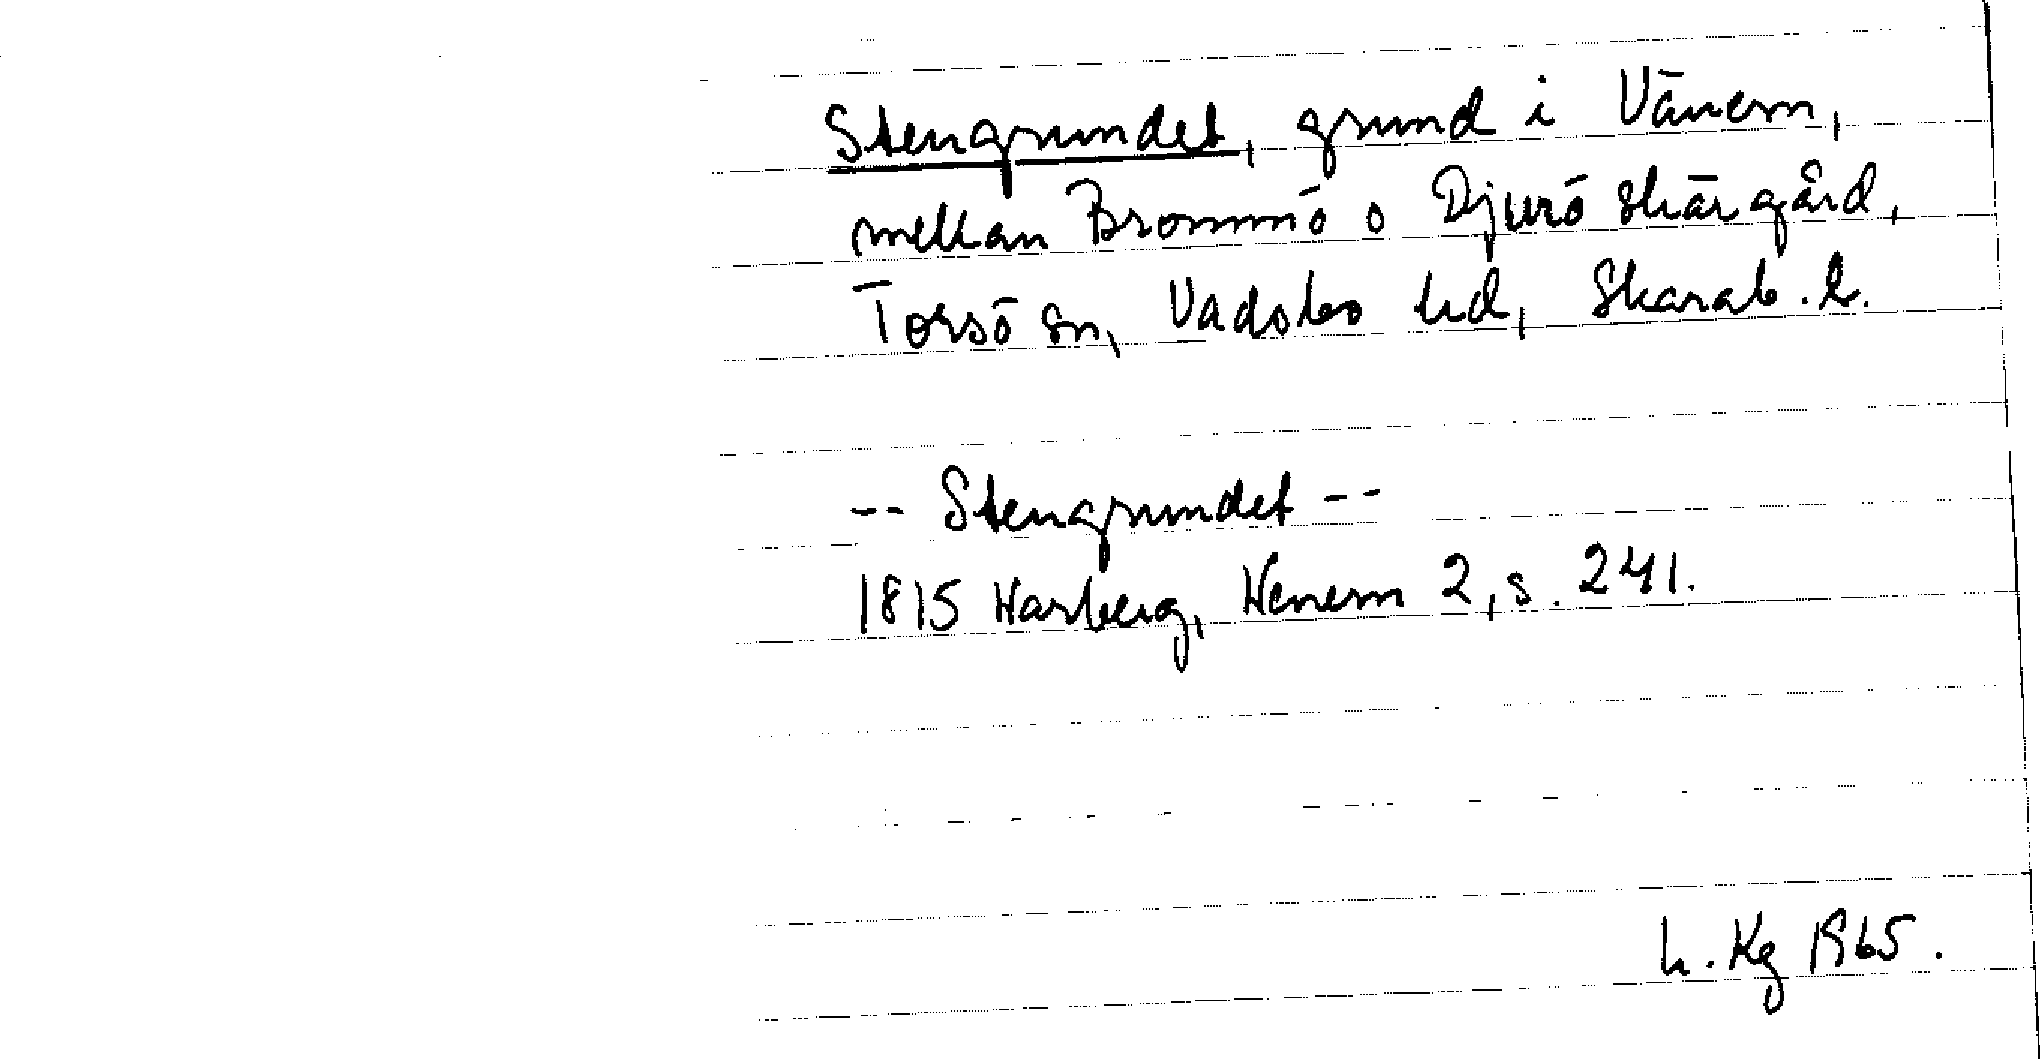 Stengrundet, grund i Vänern,
mellan Brommö o Djurö skärgård,
Torsö sn, Vadsbo hd, Skarab. l.
-- Stengrundet --
1815 Warberg, Wenern 2, s. 241.
h. Kg 1965.